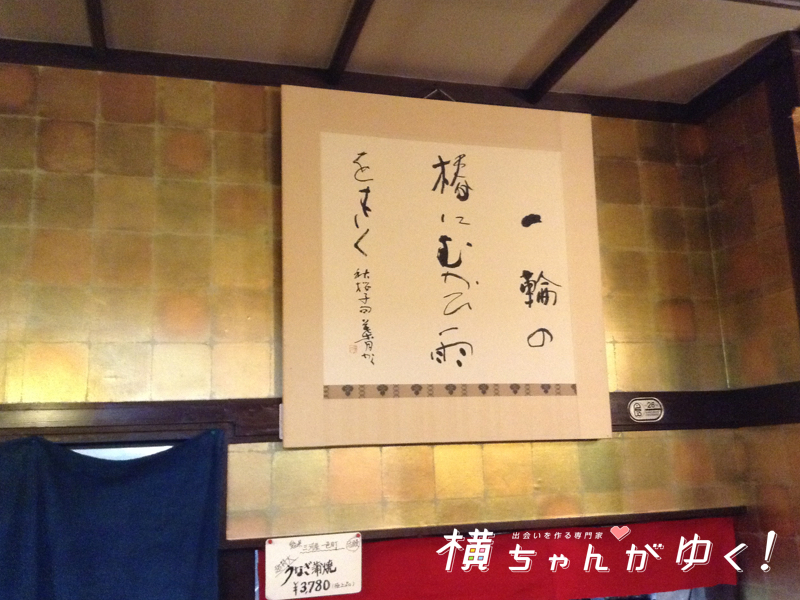 一輪の
椿にむかひ雨
をきく
秋桜子句
三河産 一色町
うなぎ蒲焼
¥3,780
出会いを作る専門家
横ちゃんがゆく!